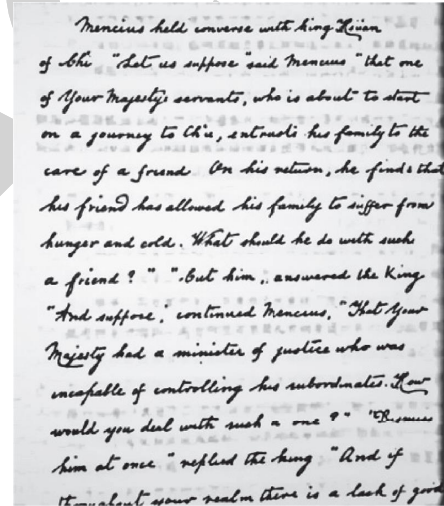 Mencius held converse with King Hsüan
of Chi "Let us suppose" said Mencius "that one
of Your Majesty's servants, who is about to start
on a journey to Ch'u, entrusts his family to the
care of a friend On his return, he finds that
his friend has allowed his family to suffer from
hunger and cold. What should he do with such
a friend?" "Cut him", answered the King
"And suppose", continued Mencius, "That Your
Majesty had a minister of justice who was
incapable of controlling his subordinates. How
would you deal with such a one?" "Dismiss
him at once" replied the King "And if
throughout your realm there is a lack of good